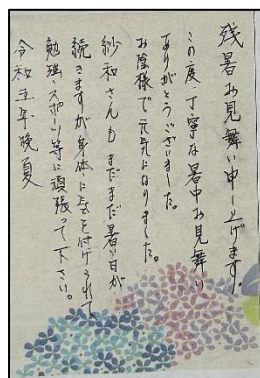 残暑お見舞い申し上げます。
この度、丁寧な暑中お見舞い
ありがとうございました。
お陰様で元気になりました。
紗和さんもまだまだ暑い日が
続きますが身体に気を付けられて
勉強、スポーツ等に頑張って下さい。
令和五年晩夏